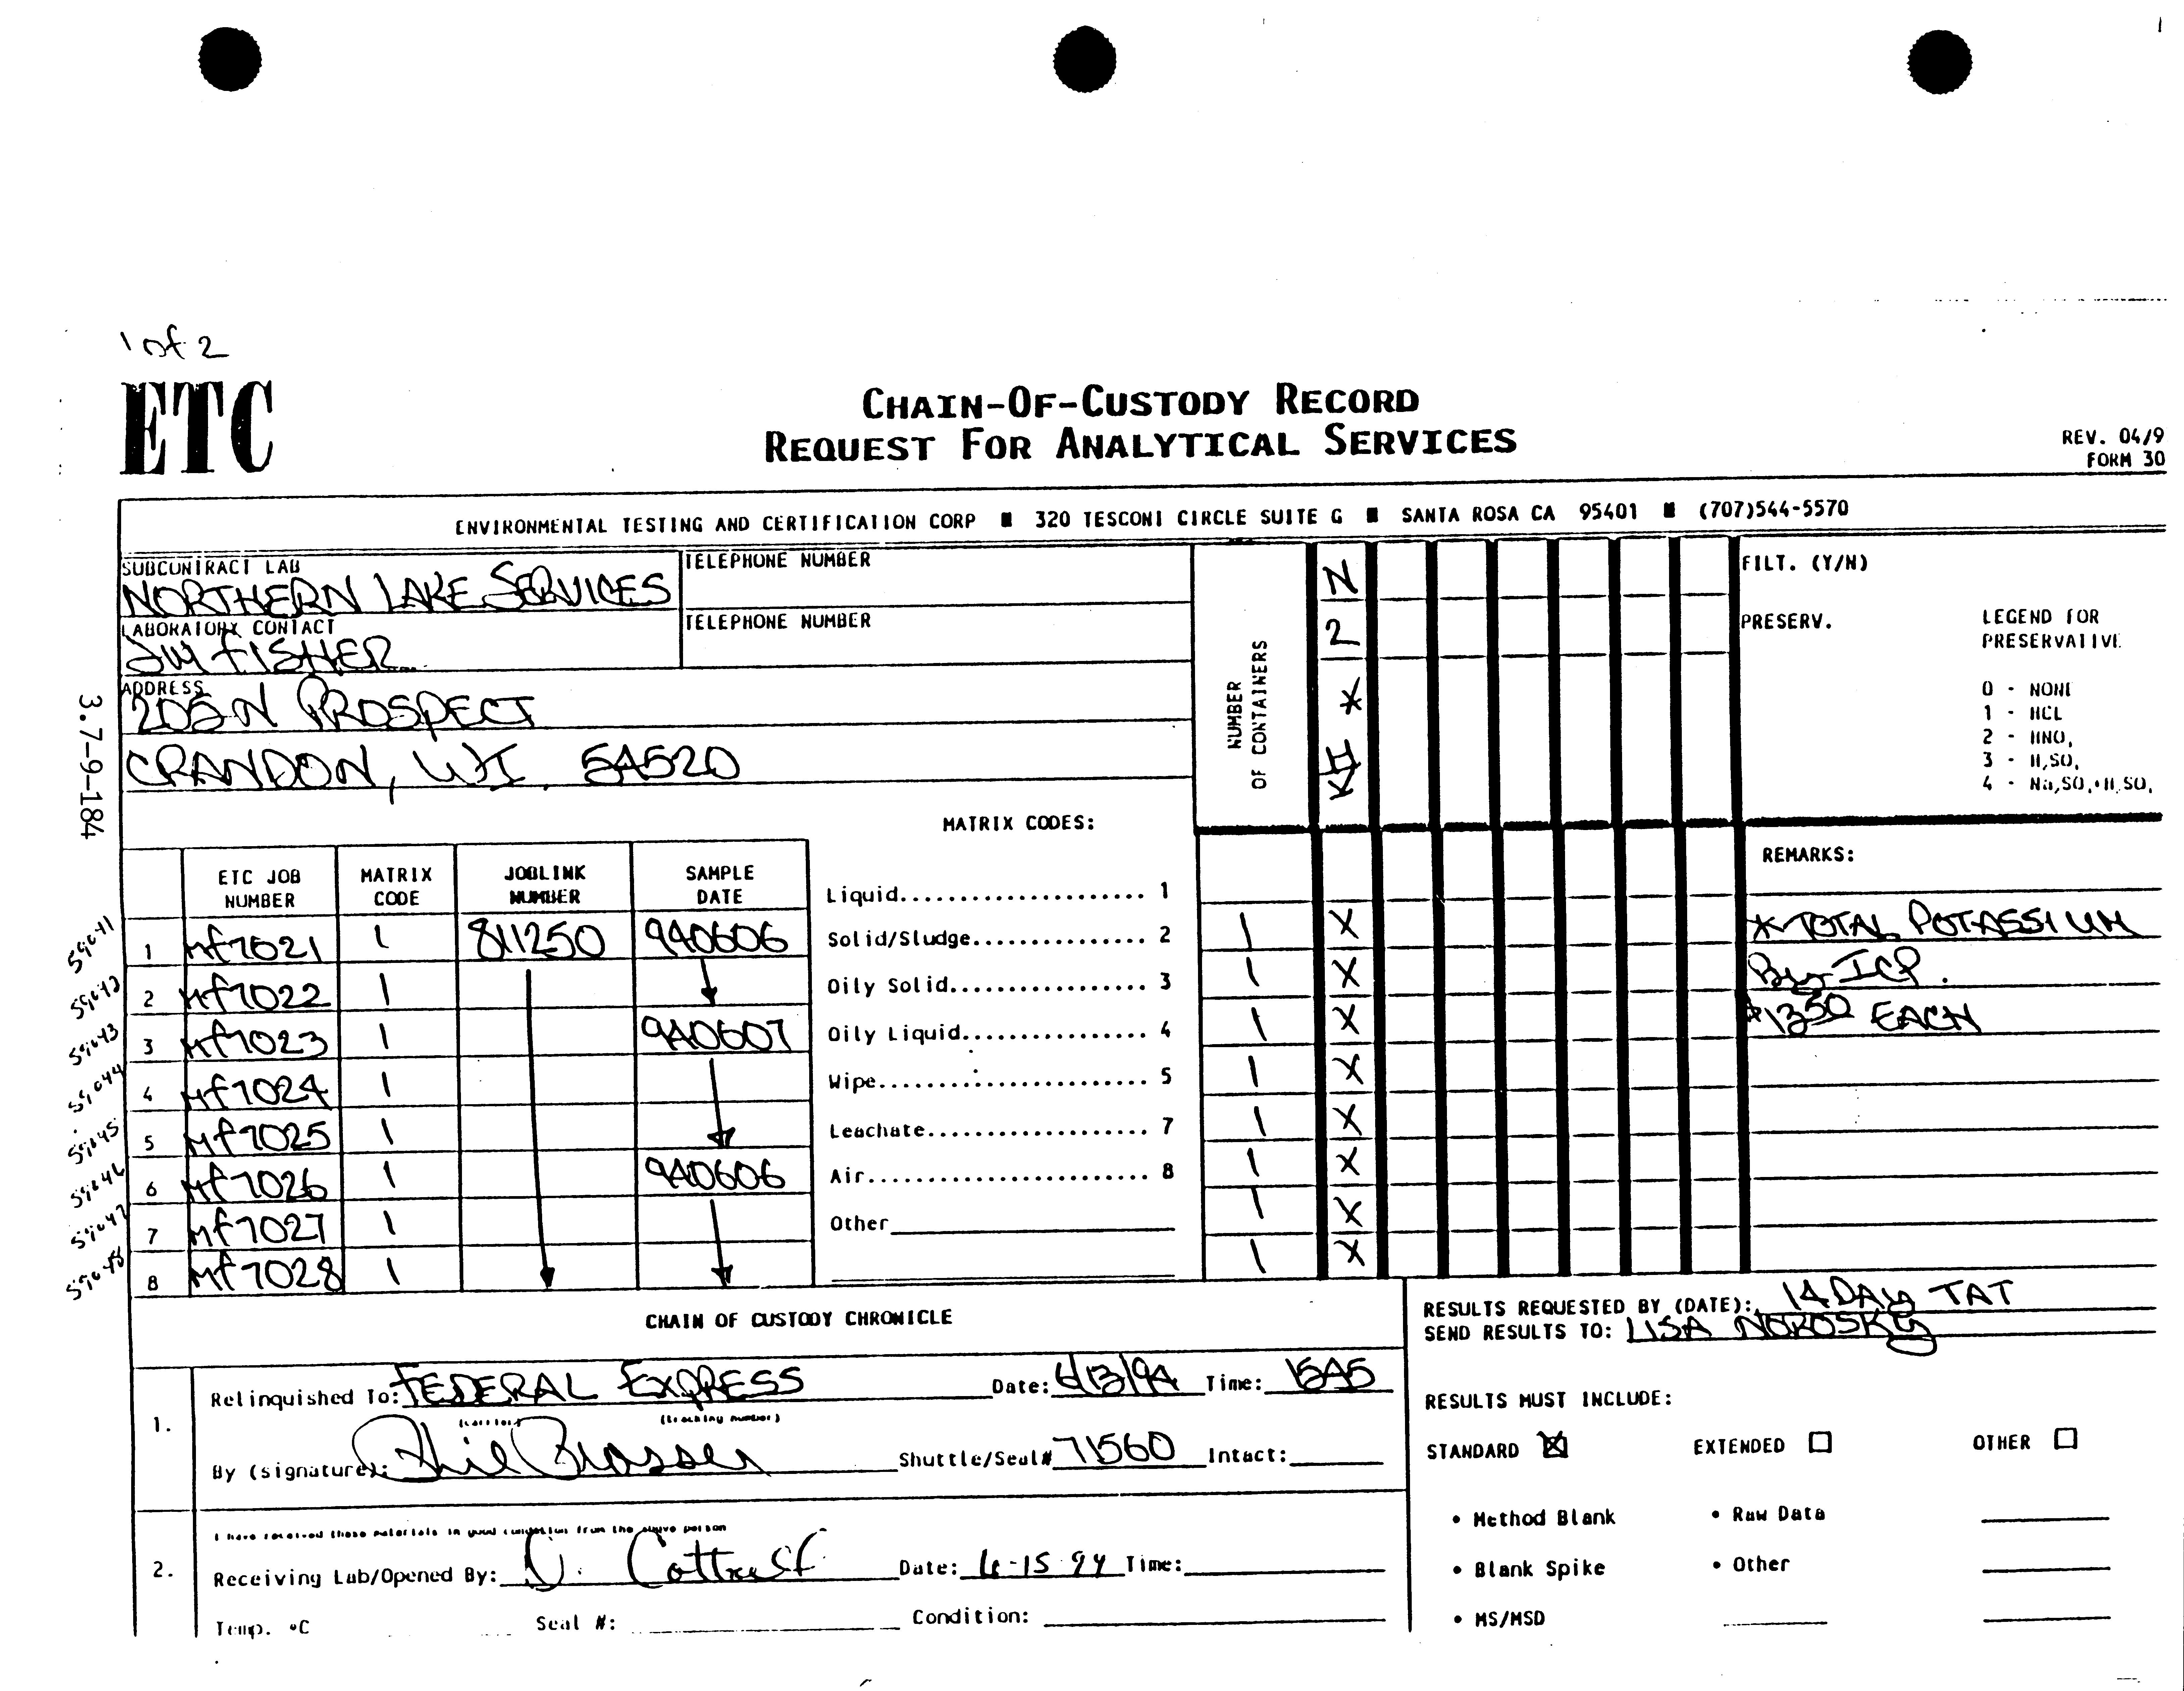 1 of 2
ETC
CHAIN-OF-CUSTODY RECORD
REQUEST FOR ANALYTICAL SERVICES
REV. 04/9
FORM 30
ENVIRONMENTAL TESTING AND CERTIFICATION CORP ■ 320 TESCONI CIRCLE SUITE G ■ SANTA ROSA CA 95401 ■ (707)544-5570
SUBCONTRACT LAB
NORTHERN LAKE SERVICES
TELEPHONE NUMBER
LABORATORY CONTACT
JIM FISHER
TELEPHONE NUMBER
ADDRESS
N PROSPECT
CRANDON, WI 54520
3.7-9-184
NUMBER
OF CONTAINERS
N
2
*
FILT. (Y/N)
PRESERV.
LEGEND FOR
PRESERVATIVE
0 - NONE
1 - HCL
2 - HNO,
3 - H,SO,
4 - Na,SO,+H,SO,
MATRIX CODES:
Liquid...................... 1
Solid/Sludge................ 2
Oily Solid.................. 3
Oily Liquid................. 4
Wipe........................ 5
Leachate.................... 7
Air......................... 8
Other
ETC JOB NUMBER MATRIX CODE JOBLINK NUMBER SAMPLE DATE
59041 1 Mf7021 1 811250 940606 1 X
2 Mf7022 1 1 X
59043 3 Mf7023 1 940607 1 X
59044 4 Mf7024 1 1 X
59045 5 Mf7025 1 1 X
59046 6 Mf7026 1 940606 1 X
59047 7 Mf7027 1 1 X
59048 8 Mf7028 1 1 X
REMARKS:
* TOTAL POTASSIUM
By ICP.
$13.50 EACH
CHAIN OF CUSTODY CHRONICLE
RESULTS REQUESTED BY (DATE): 14 DAY TAT
SEND RESULTS TO: LISA NOROSKY
1.
Relinquished To: FEDERAL EXPRESS Date: 6/13/94 Time: 1545
(carrier) (tracking number)
By (signature): Phil Shuttle/Seal# 71560 Intact:
RESULTS MUST INCLUDE:
STANDARD EXTENDED OTHER
• Method Blank • Raw Data
• Blank Spike • Other
• MS/MSD
2.
I have received these materials in good condition from the above person
Receiving Lab/Opened By: Date: 6-15-94 Time:
Temp. °C Seal #: Condition: